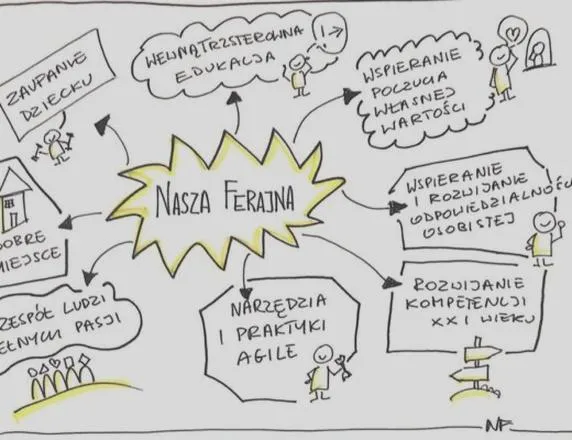 ZAUFANIE
DZIECKU
WEWNĄTRZSTEROWNA
EDUKACJA
WSPIERANIE
POCZUCIA
WŁASNEJ
WARTOŚCI
NASZA FERAJNA
WSPIERANIE
I ROZWIJANIE
ODPOWIEDZIALNOŚCI
OSOBISTEJ
DOBRE
MIEJSCE
ZESPÓŁ LUDZI
PEŁNYCH PASJI
NARZĘDZIA
I PRAKTYKI
AGILE
ROZWIJANIE
KOMPETENCJI
XXI WIEKU
NF